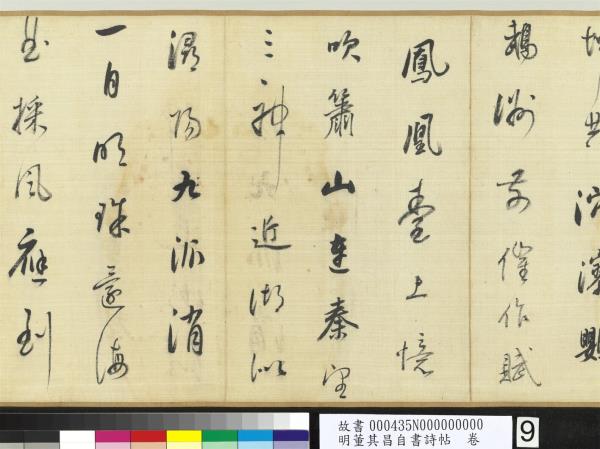 鸚
鵡洲前催作賦
鳳凰臺上憶
吹簫山連秦望
三神近湖似
潯陽九派消
一月明珠還海
曲採風應到
故書 000435N000000000
明董其昌自書詩帖 卷
9